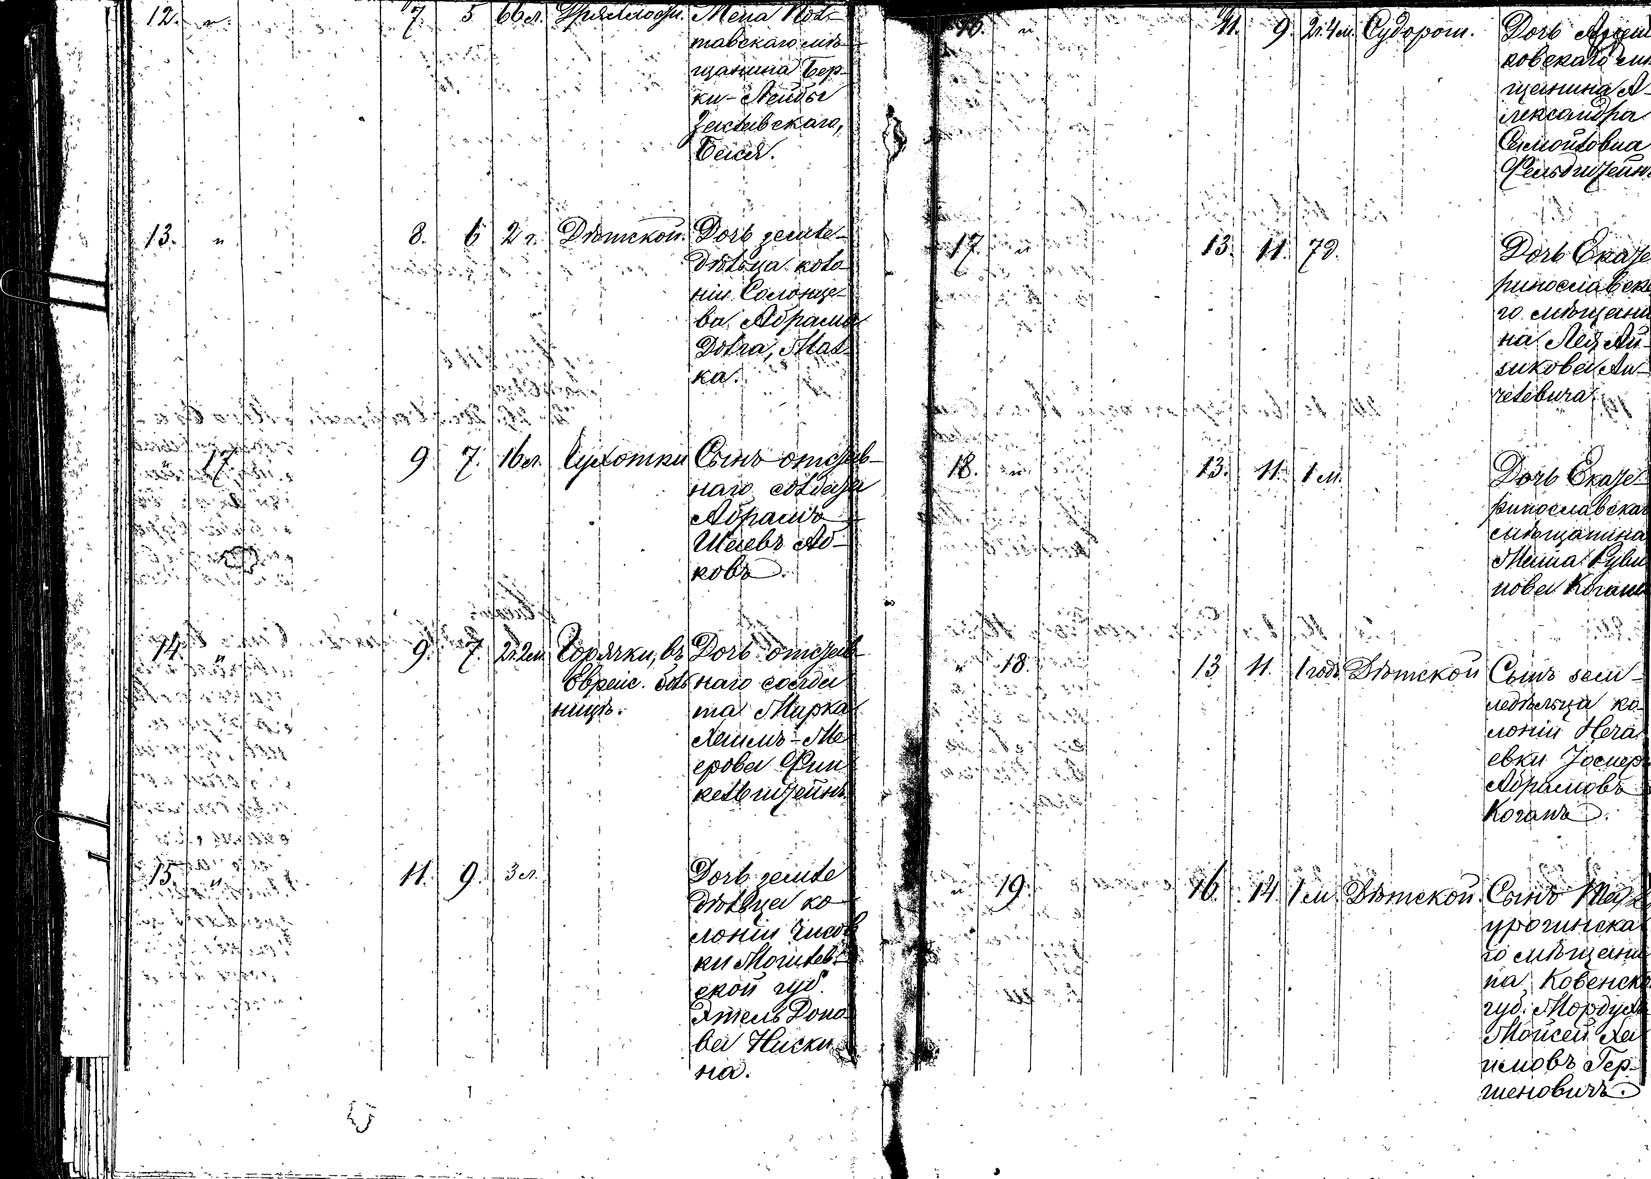 12. " 7. 5 66 л. Дряхлости. Жена Пол-
тавскаго мѣ-
щанина Бер-
ки-Лейбы
Бася.
13. " 8. 6 2 г. Дѣтской. Дочь земле-
дѣльца коло-
ніи Солонце-
ва Абрама
Долга, Мал-
ка.
17 9 7. 16 л. Чахотки Сынъ отстав-
наго солдата
Абрамъ
ковъ.
14. " 9. 7. 2 г. 2 м. Горячки, въ Дочь отстав-
Еврейс. боль- наго солда-
ницѣ. та Мирка
Хаимъ-Ме-
ерова Фин-
кельштейнъ
15. " 11. 9. 3 л. Дочь земле
дѣльца ко-
лоніи
ки Могилев-
ской губ.
Этель
ва Niskи
на.
16. " 11. 9. 2 г. 4 м. Судорог. Дочь
ковскаго мѣ
щанина А-
лександра
Фельдштейн
17. " 13. 11. 7 д. Дочь Екате
ринославска
го мѣщани
на Лея Ай-
зикова Ан-
челевича.
18. " 13. 11. 1 м. Дочь Екате
ринославскаго
мѣщанина
нова Коганъ
" 18. 13 11. 1 годъ Дѣтской Сынъ зем-
ледѣльца ко-
лоніи Неча
евки Іосифъ
Абрамовъ
Коганъ.
" 19. 16. 14. 1 м. Дѣтской. Сынъ
го мѣщани
на Ковенской
губ. Мордухъ
Мойсей Ха
имовъ Гер-
шеновичъ.